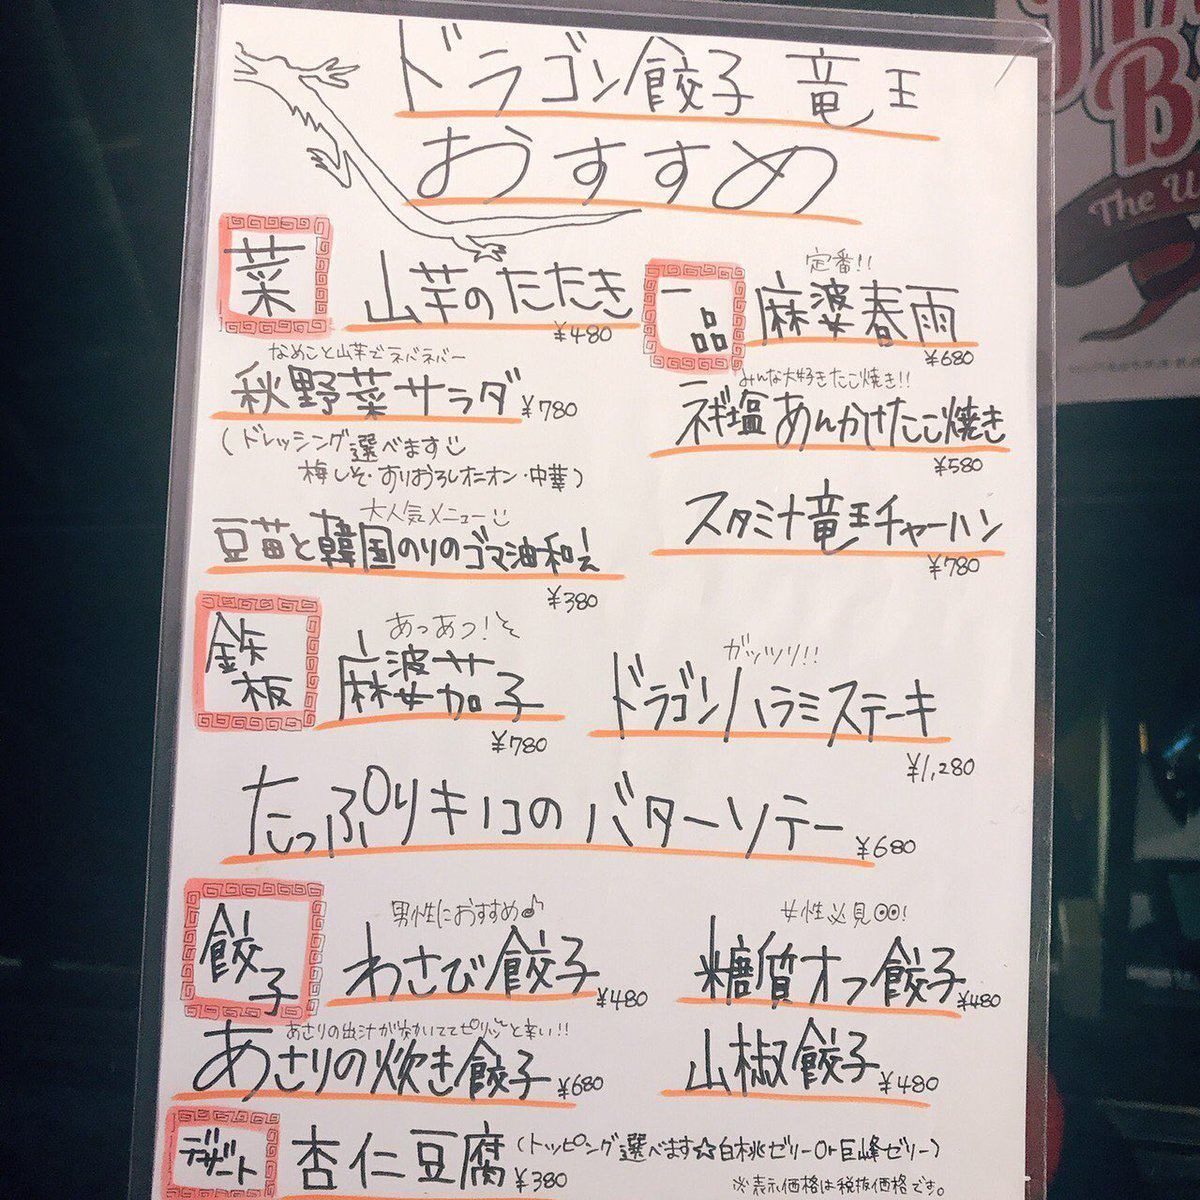 ドラゴン餃子 竜王
おすすめ
菜
山芋のたたき
¥480
なめこと山芋でネバネバー
秋野菜サラダ ¥780
(ドレッシング選べます
梅しそ・すりおろしオニオン・中華)
大人気メニュー
豆苗と韓国のりのゴマ油和え
¥380
一品
定番!!
麻婆春雨
¥680
みんな大好きたこ焼き!!
ネギ塩あんかけたこ焼き
¥580
スタミナ竜王チャーハン
¥780
鉄板
あっあつ!
麻婆茄子
¥780
ガッツリ!!
ドラゴンハラミステーキ
¥1,280
たっぷりキノコのバターソテー ¥680
餃子
男性におすすめ♪
わさび餃子 ¥480
女性必見!
糖質オフ餃子 ¥480
あさりの出汁が
ピリッと辛い!!
あさりの炊き餃子 ¥680
山椒餃子 ¥480
デザート
杏仁豆腐 (トッピング選べます☆白桃ゼリーor巨峰ゼリー)
¥380
※表示価格は税抜価格です。
The